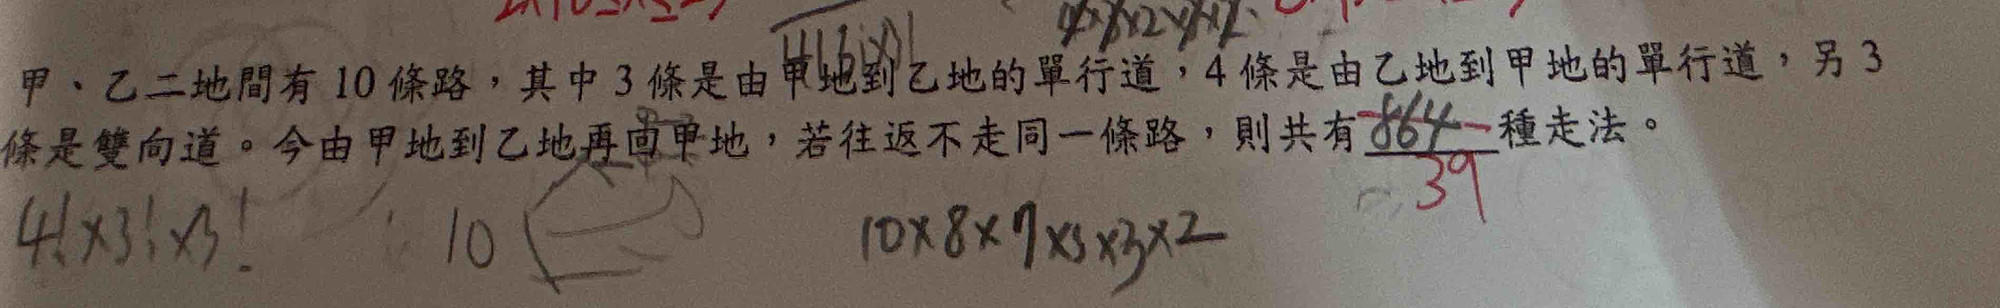 甲、乙二地間有 10 條路，其中 3 條是由甲地到乙地的單行道，4 條是由乙地到甲地的單行道，另 3
條是雙向道。今由甲地到乙地再回甲地，若往返不走同一條路，則共有 864 種走法。
39
4!×3!×3! 10 10×8×7×5×3×2